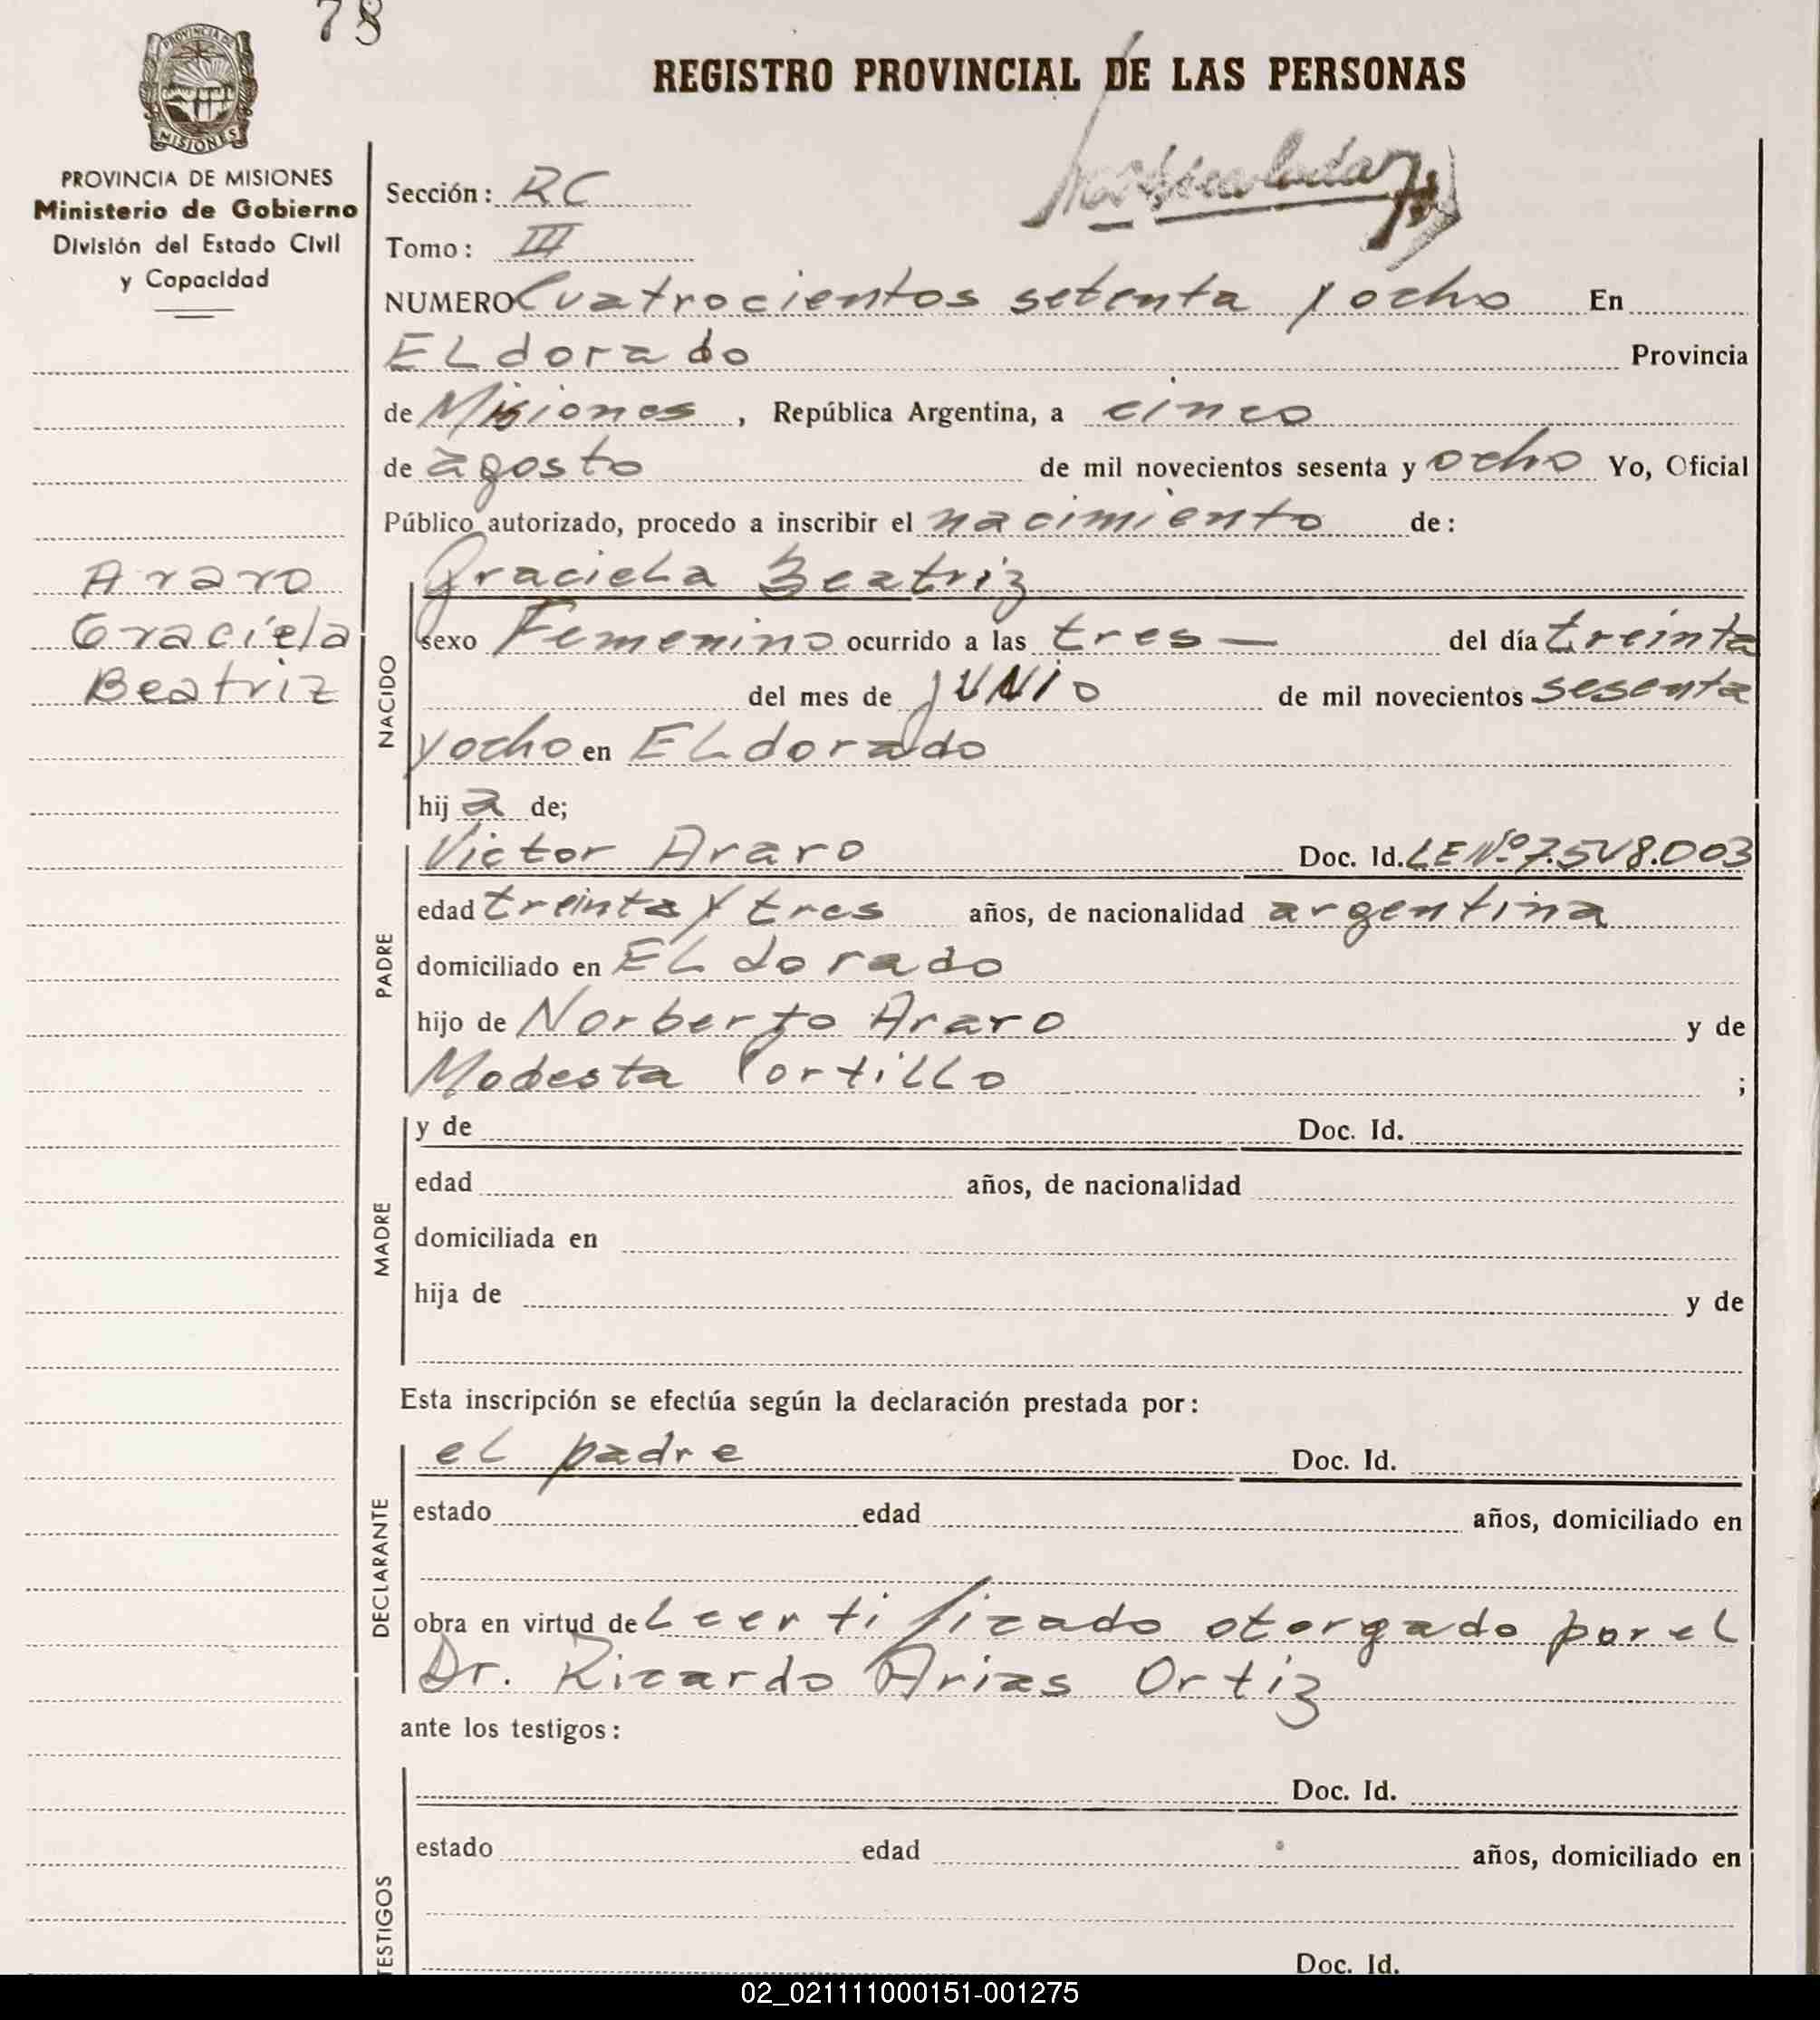 78
PROVINCIA DE
MISIONES
REGISTRO PROVINCIAL DE LAS PERSONAS
PROVINCIA DE MISIONES
Ministerio de Gobierno
División del Estado Civil
y Capacidad
Sección: RC
Tomo: III
NUMERO Cuatrocientos setenta y ocho En
ELdorado Provincia
de Misiones, República Argentina, a cinco
de agosto de mil novecientos sesenta y ocho Yo, Oficial
Público autorizado, procedo a inscribir el nacimiento de:
Araro
Graciela
Beatriz
NACIDO
Graciela Beatriz
sexo Femenino ocurrido a las tres — del día treinta
del mes de JUNIO de mil novecientos sesenta
y ocho en ELdorado
hij a de;
PADRE
Victor Araro Doc. Id. LE Nº 7.548.003
edad treinta y tres años, de nacionalidad argentina
domiciliado en ELdorado
hijo de Norberto Araro y de
Modesta Portillo ;
MADRE
y de Doc. Id.
edad años, de nacionalidad
domiciliada en
hija de y de
Esta inscripción se efectúa según la declaración prestada por:
DECLARANTE
el padre Doc. Id.
estado edad años, domiciliado en
obra en virtud de certificado otorgado por el
Dr. Ricardo Arias Ortiz
ante los testigos:
TESTIGOS
Doc. Id.
estado edad años, domiciliado en
Doc. Id.
02_021111000151-001275